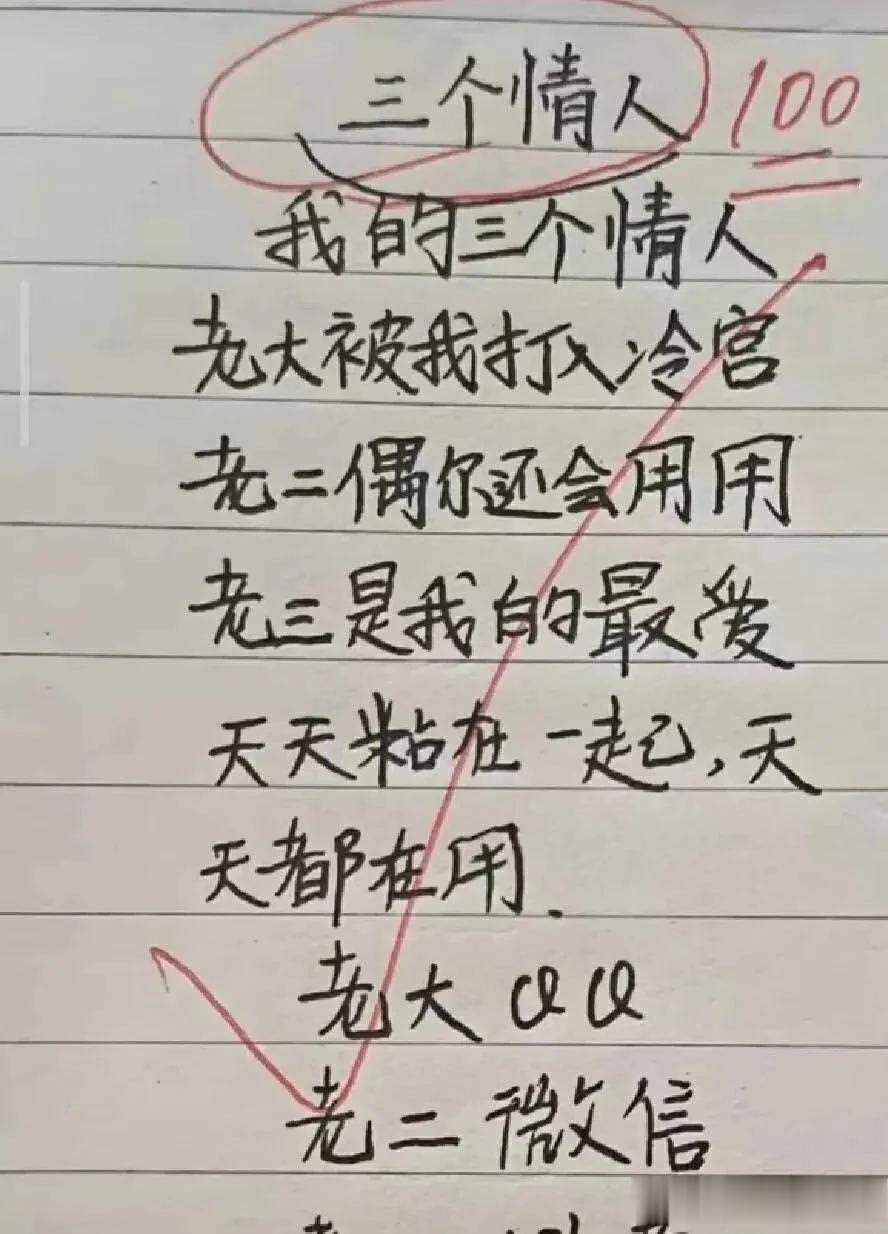 三个情人 100
我的三个情人
老大被我打入冷宫
老二偶尔还会用用
老三是我的最爱
天天粘在一起,天
天都在用.
老大 QQ
老二 微信